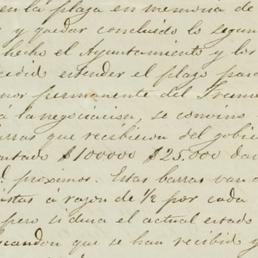 en la plaza en memoria de
y quedar concluido lo segun
hecho el Ayuntamiento y los
cedió estender el plazo para
permanente del
á la negociacion, se convino
barras que recibieron del gobier
contado $100000 $25,000 da
proximos. Estas barras van
á razon de ½ por cada
pero si dura el actual estado
que se han recibido y